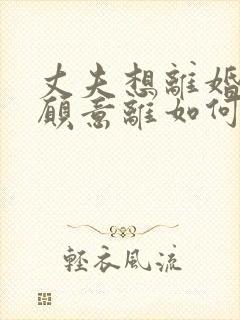 丈夫想離婚
願意離如何
輕衣風流